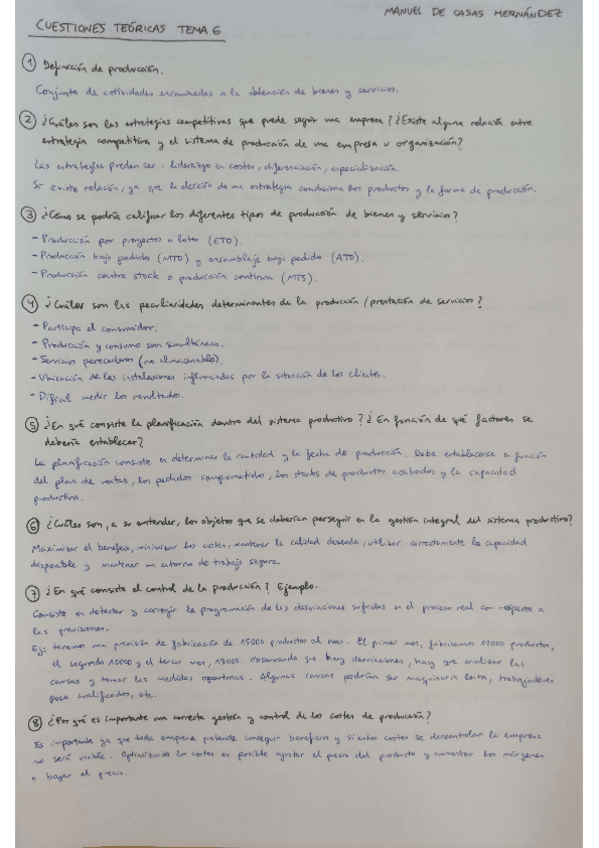 MANUEL DE CASAS HERNÁNDEZ
CUESTIONES TEÓRICAS TEMA 6
① Definición de producción.
Conjunto de actividades encaminadas a la obtención de bienes y servicios.
② ¿Cuáles son las estrategias competitivas que puede seguir una empresa? ¿Existe alguna relación entre
estrategia competitiva y el sistema de producción de una empresa u organización?
Las estrategias pueden ser: liderazgo en costes, diferenciación, especialización.
Si existe relación, ya que la elección de una estrategia condiciona los productos y la forma de producción.
③ ¿Cómo se podría calificar los diferentes tipos de producción de bienes y servicios?
- Producción por proyectos o lotes (ETO).
- Producción bajo pedido (MTO) y ensamblaje bajo pedido (ATO).
- Producción contra stock o producción continua (MTS).
④ ¿Cuáles son las peculiaridades determinantes de la producción / prestación de servicios?
- Participa el consumidor.
- Producción y consumo son simultáneos.
- Servicios perecederos (no almacenable).
- Ubicación de las instalaciones influenciadas por la situación de los clientes.
- Difícil medir los resultados.
⑤ ¿En qué consiste la planificación dentro del sistema productivo? ¿En función de qué factores se
debería establecer?
La planificación consiste en determinar la cantidad y la fecha de producción. Debe establecerse en función
del plan de ventas, los pedidos comprometidos, los stocks de productos acabados y la capacidad
productiva.
⑥ ¿Cuáles son, a su entender, los objetos que se deberían perseguir en la gestión integral del sistema productivo?
Maximizar el beneficio, minimizar los costes, mantener la calidad deseada, utilizar correctamente la capacidad
disponible y mantener un entorno de trabajo seguro.
⑦ ¿En qué consiste el control de la producción? Ejemplo.
Consiste en detectar y corregir la programación de las desviaciones sufridas en el proceso real con respecto a
las previsiones.
Ej: tenemos una previsión de fabricación de 15000 productos al mes. El primer mes, fabricamos 12000 productos,
el segundo 10000 y el tercer mes, 13000. Observando que hay desviaciones, hay que analizar las
causas y tomar las medidas oportunas. Algunas causas podrían ser maquinaria lenta, trabajadores
poco cualificados, etc.
⑧ ¿Por qué es importante una correcta gestión y control de los costes de producción?
Es importante ya que toda empresa pretende conseguir beneficios y si estos costes se descontrolan la empresa
no será viable. Optimizando los costes es posible ajustar el precio del producto y aumentar los márgenes
o bajar el precio.